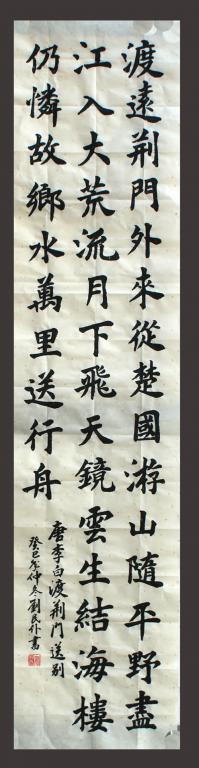 渡遠荆門外來從楚國游山隨平野盡
江入大荒流月下飛天鏡雲生結海樓
仍憐故鄉水萬里送行舟
唐李白渡荆門送别
癸巳年仲冬劉民仆書